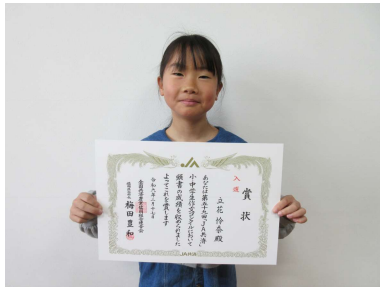 賞状
入選
立花怜奈殿
あなたは第五十九回「JA共済」
小・中学生書道コンクールにおいて
頭書の成績を収められました
よってこれを賞します
梅田豊和
JA共済